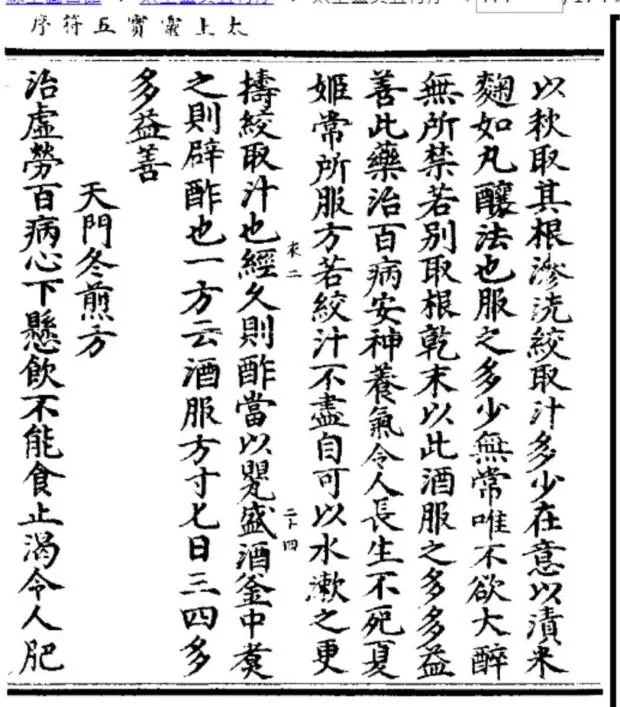 太上靈寳五符序
以秋取其根滲洗絞取汁多少在意以漬米
麴如丸釀法也服之多少無常唯不欲大醉
無所禁若別取根乾末以此酒服之多多益
善此藥治百病安神養氣令人長生不死夏
姬常所服方若絞汁不盡自可以水漱之更
衣二 二十四
擣絞取汁也經久則酢當以甖盛酒釜中煑
之則辟酢也一方云酒服方寸匕日三四多
多益善
天門冬煎方
治虛勞百病心下懸飲不能食止渴令人肥